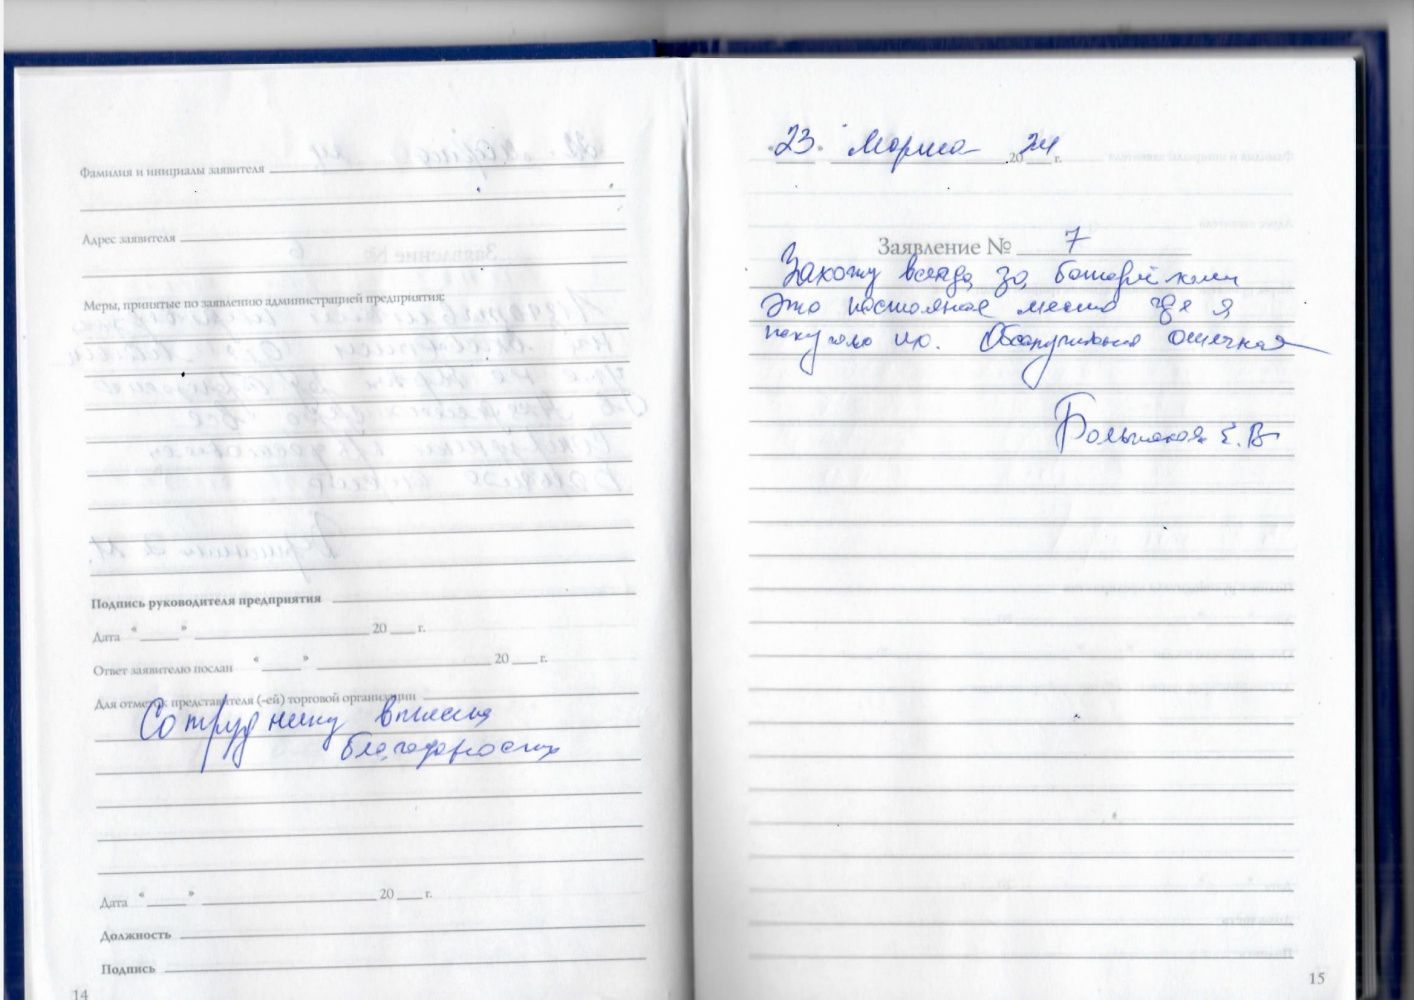 Фамилия и инициалы заявителя
Адрес заявителя
Меры, принятые по заявлению администрацией предприятия:
Подпись руководителя предприятия
Дата “ ” 20 г.
Ответ заявителю послан “ ” 20 г.
Для отметок представителя (-ей) торговой организации
Сотруднику внесена
благодарность
Дата “ ” 20 г.
Должность
Подпись
14
“23” Марта 20 24 г.
Заявление № 7
Захожу всегда за батарейками
Это постоянное место где я
покупаю их. Обслуживание отличная
Большакова Е.В
15